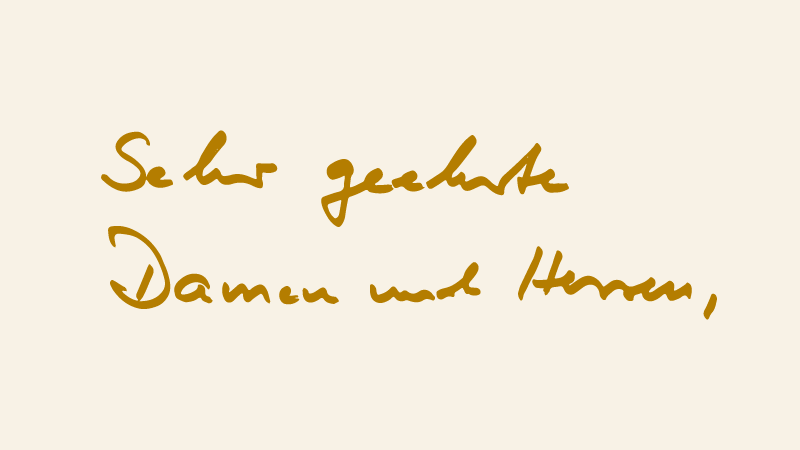 Sehr geehrte
Damen und Herren,